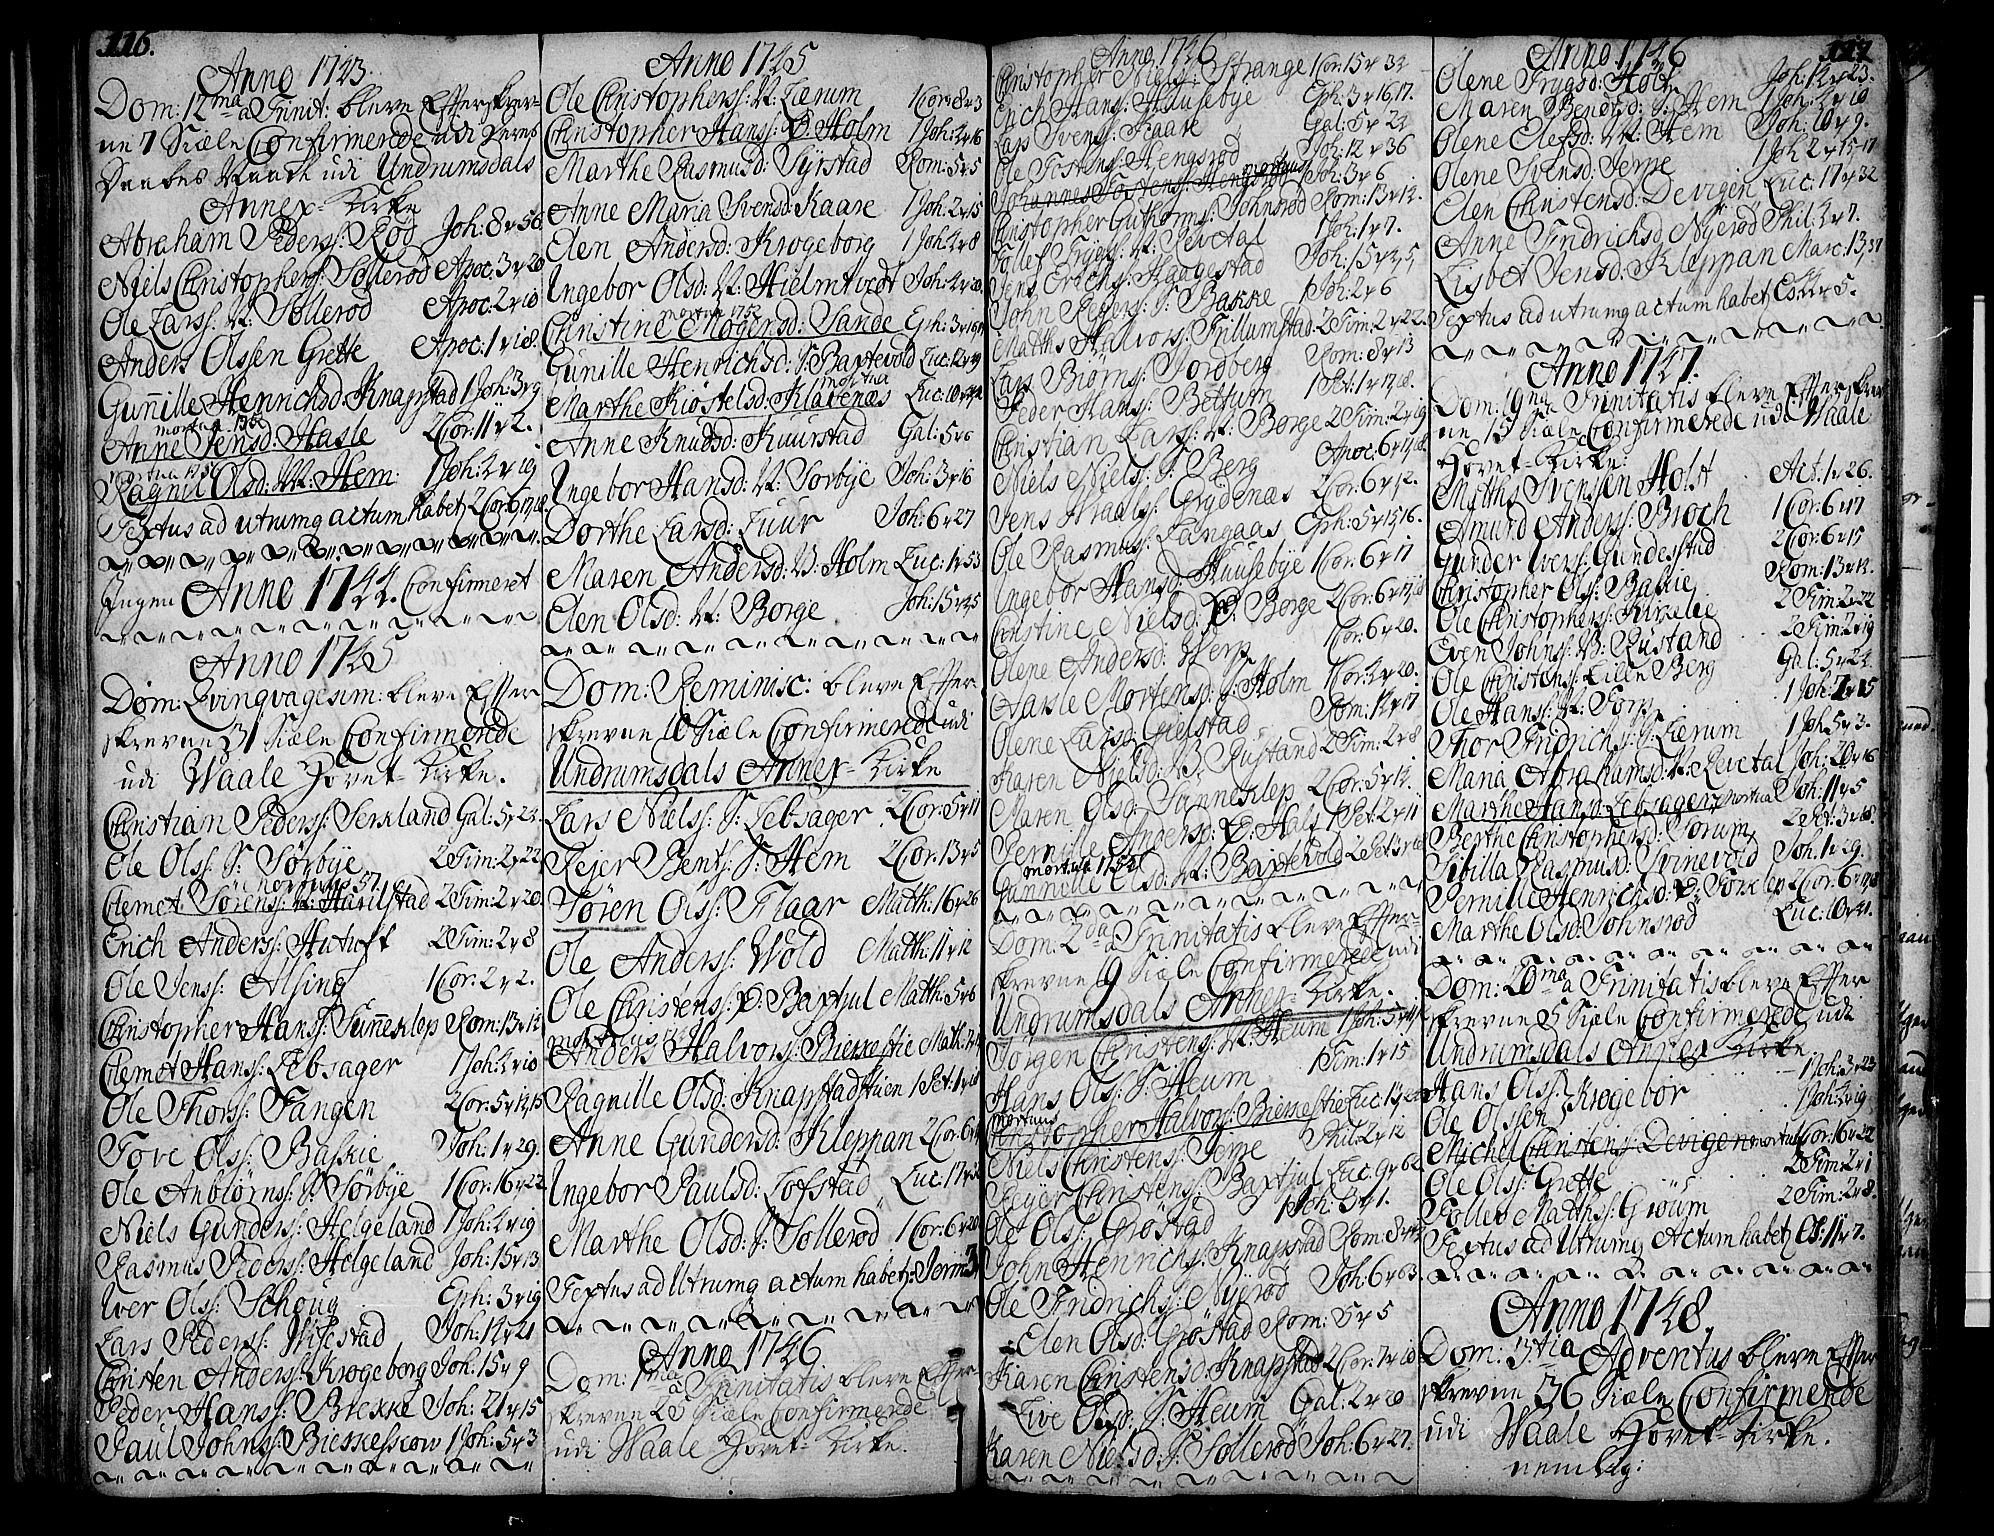 116.
Anno 1743.
Dom: 12ma a Trinit: bleve Effterskrev-
ne 7 Siæle Confirmerede udi deres
Daabes Pagt udi Undrumsdals
Annex-Kirke
Abraham Peders: Rød Joh: 8 v 56
Niels Christophers: Sollerød Apoc: 3 v 20
Ole Larss: V: Sollerød Apoc: 2 v 10
Anders Olssen Grette Apoc: 1 v 18
Gunnille Henrichsd: Knapstad 1 Joh: 3 v 9
mortua
Anne Jensd: Hasle 2 Cor: 11 v 2.
mortua 1756
Ragnil Olsd: V: Hem: 1 Joh: 2 v 19
Textus ad utrumq actum habet 2 Cor: 6
Ingen Anno 1744. Confirmeret
Anno 1745
Dom: Qvinqvagesim: bleve Effter-
skrevne 31 Siæle Confirmerede
udi Waale Hovet-Kirke.
Christian Peders: Serkland Gal: 5 v 24
Ole Olss: S: Sørbÿe 2 Tim: 2 v 22
mortuus 57.
Clemet Sörens: V: Harilstad 2 Tim: 2 v 20.
Erich Anderss: Autuft 2 Tim: 2 v 8
Ole Jenss: Alsing 1 Cor: 2 v 2.
Christopher Hans: Sunneklep Rom: 13 v 12
Clemet Hans: Lebsager 1 Joh: 2 v 10
Ole Thorss: Tangen 2 Cor: 5 v 14,15
Tore Olss: Bakkie Joh: 1 v 29.
Ole Anbiörns: S: Sörbÿe 1 Cor: 16 v 22
Niels Gunders: Helgeland 1 Joh: 2 v 19
Rasmus Peders: Helgeland Joh: 15 v 13
Iver Olss: Schoug Eph: 3 v 19
Lars Peders: Wisestad Joh: 14 v 21
Christen Anders: Krogeborg Joh: 15 v 9
Peder Hanss: Brekke Joh: 21 v 15
Paul Johns: Bierkeskow 1 Joh: 5 v 3
Anno 1745
Ole Christophers: V: Lærum 1 Cor: 8 v 3
Christopher Hans: Ø: Holm 1 Joh: 2 v 16
Marthe Rasmusd: Sÿrstad Rom: 5 v 5
Anne Maria Svensd: Kaare 1 Joh: 2 v 15
Elen Andersd: Krogeborg 1 Joh: 2 v 8
Ingebor Olsd: V: Hielmtvedt Joh: 4 v 20
mortua 1752
Christine Mogensd: Sande Eph: 3 v 16
Gunille Henrichsd: S: Baxtevold Luc: 12 v 9
mortua
Marthe Kiöstelsd: Kladenæs Luc: 10 v 42
Anne Knudsd: Kuurstad Gal: 5 v 6
Ingebor Hansd: V: Sorbÿe Joh: 3 v 16
Dorthe Larsd: Luur Joh: 6 v 27
Maren Andersd: V: Holm Luc: 1 v 53
Elen Olsd: V: Borge Joh: 15 v 25
Dom: Reminisc: bleve Effter-
skrevne 10 Siæle Confirmerede udi
Undrumsdals Annex-Kirke
Lars Nielss: S: Lebsager 2 Cor: 5 v 11
Rejer Bents: S: Hem 2 Cor: 13 v 5
Sören Olss: Flaar Matth: 16 v 26
Ole Anderss: Wold Matth: 11 v 12
Ole Christens: Ø: Baxtjul Matth: 5 v 6
mortuus
Anders Halvors: Bierkestie Matth:
Ragnille Olsd: Knapstadstuen 1 Pet: 1 v 18
Anne Gundersd: Kleppan 2 Cor: 6 v
Ingebor Paulsd: Lofstad Luc: 17 v 32
Marthe Olsd: S: Sollerød 1 Cor: 6 v 20
Textus ad Utrumq actum habetz: Jerim 3
Anno 1746
Dom: 1ma a Trinitatis bleve Effter-
skrevne 25 Siæle Confirmerede
udi Waale Hovet-Kirke.
Anno 1746
Christopher Niels: Strange 1 Cor: 15 v 33
Erich Hans: Huusebÿe Eph: 3 v 16,17.
Lars Svens: Kaare Gal: 5 v 24
Ole Tostens: Hengsrød Joh: 12 v 36
mortuus
Johannes Torstens: Hengsrød Joh: 3 v 6
Christopher Guthorms: Johnsrød Rom: 13 v 12.
Tollef Trÿgs: V: Revetal 1 Joh: 1 v 7.
Jens Erichs: Haagestad Joh: 15 v 4,5,
John Rejers: S: Bakke 1 Joh: 2 v 6
Matths Halvors: Trillumstad 2 Tim: 2 v 22.
Lars Biörns: Jordberg Rom: 8 v 13
Peder Hans: Bettum 1 Pet: 1 v 17,18.
Christian Lars: V: Borge 2 Tim: 2 v 19
Niels Niels: S: Berg Apoc: 6 v
Jens Iwaals: Grÿdenæs 2 Cor: 6 v 2.
Ole Rasmus: Langaas Eph: 5 v 15,16.
Ingebor Hansd: Huusebÿe 1 Cor: 6 v 17
Christine Nielsd: Ø: Borge 2 Cor: 6 v 17,18
Olene Andersd: Werp 1 Cor: 6 v 20.
Aasle Mortensd: S: Holm 1 Cor: 2 v 20.
Olene Larsd: Gielstad Rom: 12 v 17
Karen Nielsd: B: Rustand 2 Tim: 2 v 8
Maren Olsd: Sunneklep 2 Cor: 5 v 14.
Pernille Andersd: Ø: Hals 1 Pet: 2 v 11
mortua 1754
Gunnille Olsd: V: Baxtevold 2 Pet: 3 v 18
Dom: 2da a Trinitatis bleve Effter-
skrevne 19 Siæle Confirmerede udi
Undrumsdals Annex-Kirke.
Jörgen Christens: V: Heum 1 Joh: 5 v 4
Hans Ols: S: Heum 1 Tim: 1 v 15
mortuus
Christopher Halvors: Bierkestie Luc: 15
Niels Christens: Jerpe Phil: 2 v 12
Rejer Christens: Baxtjul Luc: 9 v 62
Ole Ols: Gröstad 1 Joh: 3 v 1.
John Henrichs: Knapstad Rom: 8 v
Ole Indrichs: Nÿerød Joh: 6 v 63.
Elen Olsd: Gröstad Rom: 5 v 5
Karen Christensd: Knapstad 2 Cor: 7 v 10
Live Olsd: S: Heum Gal: 2 v 20
Karen Nielsd: S: Sollerød Joh: 6 v 27.
117
Anno 1746
Olene Trygsd: Holt Joh: 12 v 23.
Maren Bendtsd: S: Hem 1 Joh: 2 v 10
Olene Olefsd: V: Hem Joh: 10 v 9.
Olene Svensd: Jerpe 1 Joh 2 v 15,17
Elen Christensd: Devigen Luc: 17 v 32
Anne Indrichsd Nÿerød Phil: 2 v 7.
Lisbet Jensd: Kleppan Marc: 13, 37
Textus ad utrumq actum habet Es: 22 v 5.
Anno 1747.
Dom: 19na a Trinitatis bleve Effterskrev-
ne 15 Siæle Confirmerede udi Waale
Hovet-Kirke:
Matths Svenssen Holt Act: 1 v 26.
Amund Anders: Broch 1 Cor: 6 v 17
Gunder Ivers: Gundestad 2 Cor: 6 v 15
Christopher Ols: Bakkie Rom: 13 v 12.
Ole Christophers: Kirkelie 2 Tim: 2 v 22
Even Johns: B: Rustand 2 Tim: 2 v 19
Ole Christens: Lille Berg Gal: 5 v 24
Ole Hans: V: Torp 1 Joh: 2 v 15
Thor Fridrichs: S: Lærum 1 Joh: 5 v 3.
Maria Abrahamsd: V: Revetal Joh: 20 v 16
Marthe Hansd: Lebsager mortua Joh: 11 v 5
Berthe Christophersd: Sorum 2 Pet: 3 v 18.
Sibilla Rasmusd: Svinevold Joh: 1 v 29.
Pernille Henrichsd: Ø: Torklep 2 Cor: 6 v
Marthe Olsd: Johnsrød Luc: 10 v 41.
Dom: 20ma a Trinitatis bleve Effter
skrevne 5 Siæle Confirmerede udi
Undrumsdals Annex Kirke
Hans Ols: 1 Joh: 3 v 23
Ole Olssen } Krogebor 1 Joh: 2 v 19
Michel Christens: Devigen mortuus 1 Cor: 16 v 22
Ole Ols: Grette 2 Tim: 2 v 1
Tollev Matths: Gröum 2 Tim: 2 v 8.
Textus ad Utrumq Actum habetz Es: 11 v 7.
Anno 1748.
Dom: 3tia Adventus bleve Effter
skrevne 36 Siæle Confirmerede
udi Waale Hovet-Kirke.
nemlig: